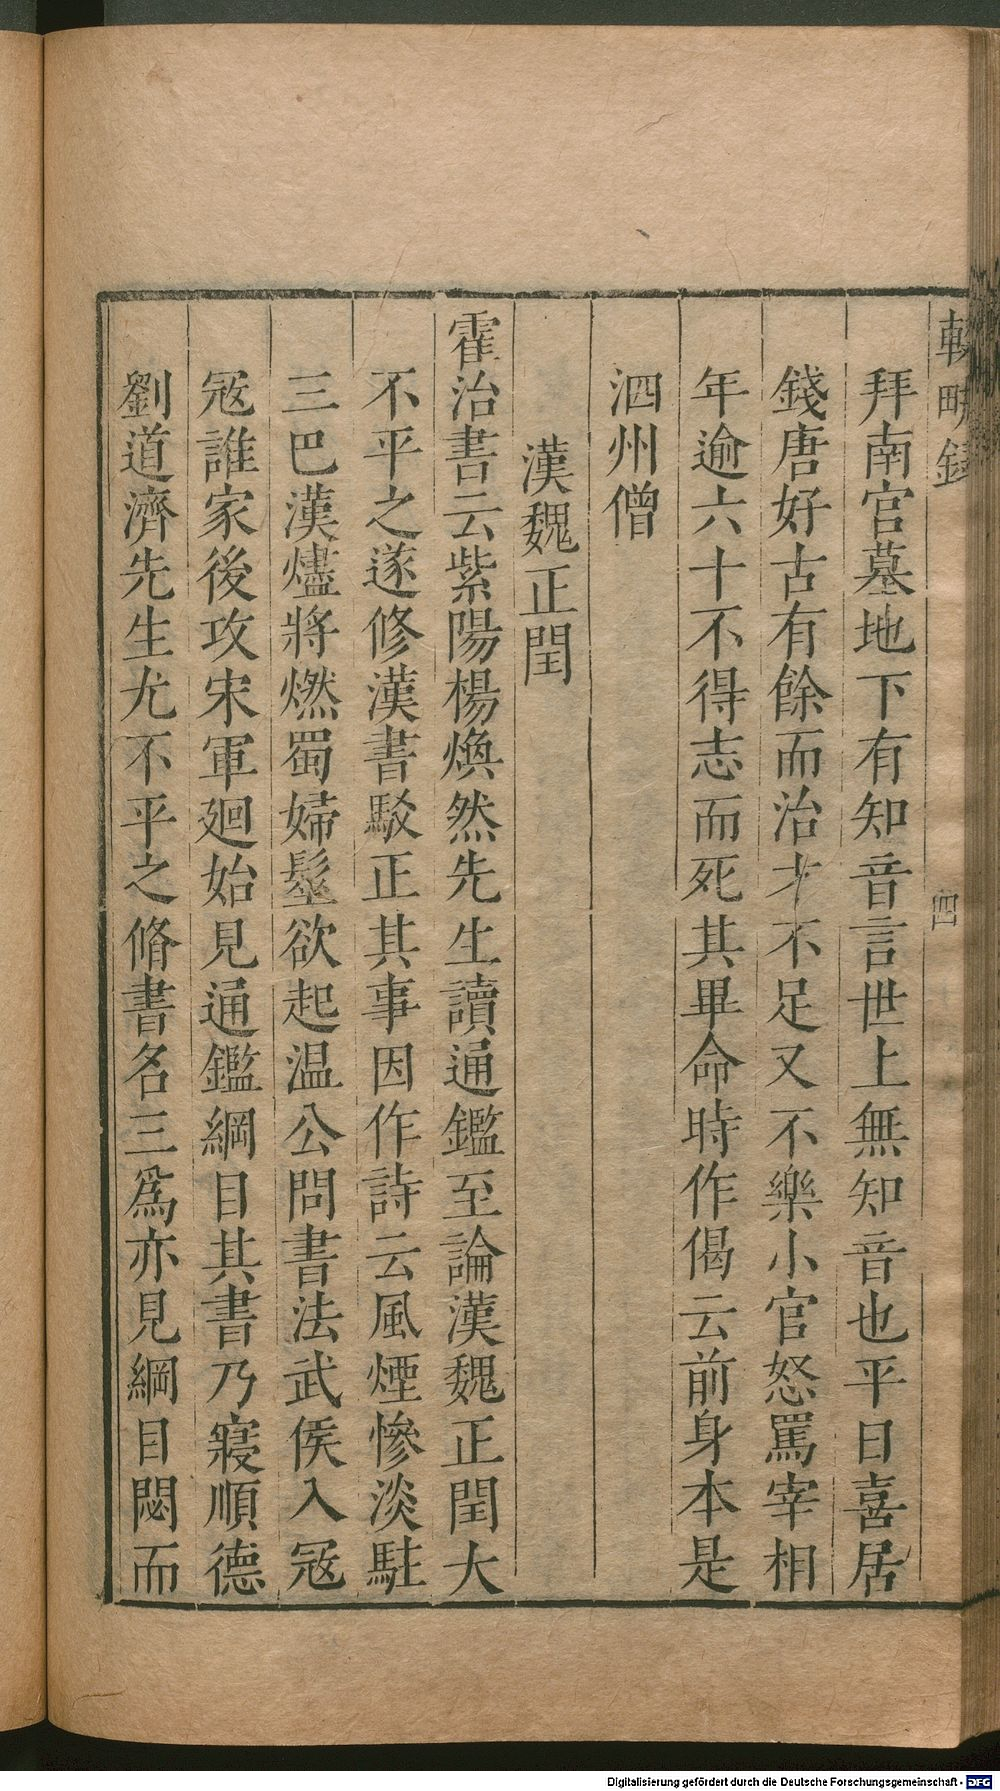 輟畊錄
四
拜南宫墓地下有知音言世上無知音也平日喜居
錢唐好古有餘而治才不足又不樂小官怒罵宰相
年逾六十不得志而死其畢命時作偈云前身本是
泗州僧
漢魏正閏
霍治書云紫陽楊煥然先生讀通鑑至論漢魏正閏大
不平之遂修漢書駁正其事因作詩云風煙慘淡駐
三巴漢燼將燃蜀婦髽欲起温公問書法武侯入冦
冦誰家後攻宋軍廻始見通鑑綱目其書乃寢順德
劉道濟先生尤不平之脩書名三爲亦見綱目悶而
Digitalisierung gefördert durch die Deutsche Forschungsgemeinschaft - DFG